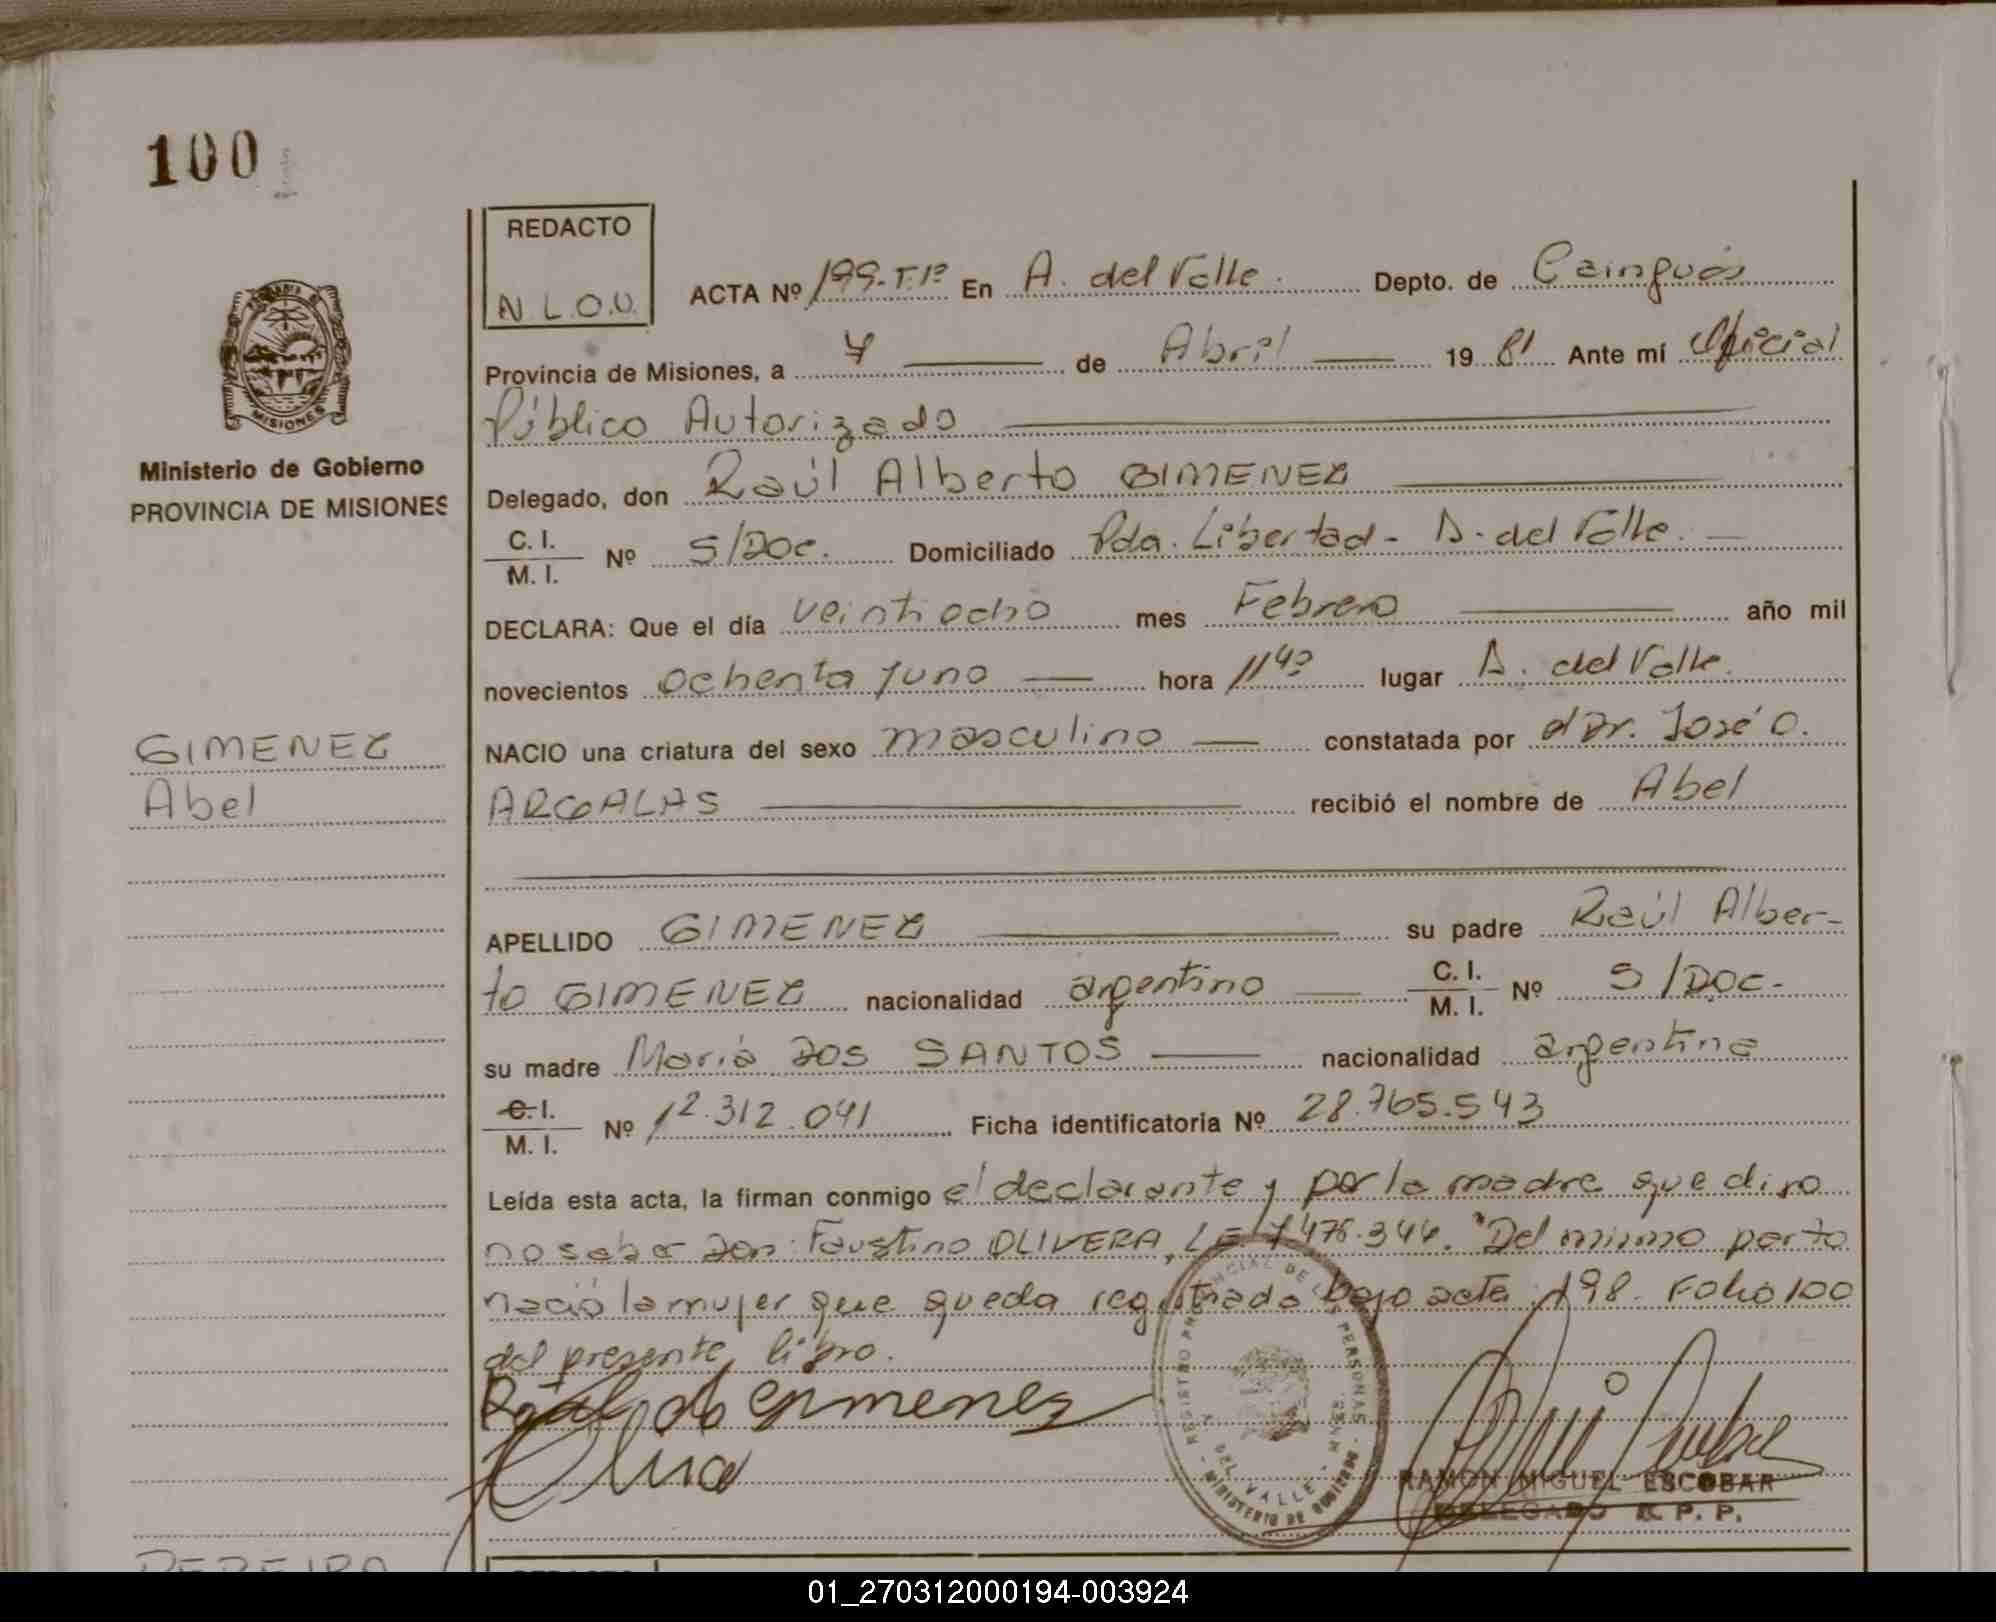 100
REDACTO
N.L.O.U.
ACTA Nº 199-T.1º En A. del Valle. Depto. de Cainguás
Provincia de Misiones, a 7 de Abril 19 81 Ante mí Oficial
Público Autorizado
Delegado, don Raúl Alberto GIMENEZ
C. I.
M. I. Nº S/Doc. Domiciliado Pda. Libertad - A. del Valle.
DECLARA: Que el día veintiocho mes Febrero año mil
novecientos ochenta y uno hora 11 40 lugar A. del Valle.
NACIO una criatura del sexo masculino constatada por el Dr. José O.
ARGALAS recibió el nombre de Abel
APELLIDO GIMENEZ su padre Raúl Alber-
to GIMENEZ nacionalidad argentino C. I. M. I. Nº S/Doc-
su madre María DOS SANTOS nacionalidad argentina
C. I.
M. I. Nº 12.312.041 Ficha identificatoria Nº 28.765.543
Leída esta acta, la firman conmigo el declarante y por la madre que dijo
no saber don: Faustino OLIVERA, LE 7.476.344. "Del mismo parto
nació la mujer que queda registrada bajo acta 198. Folio 100
del presente libro.
Gimenez
RAMON MIGUEL ESCOBAR
DELEGADO R. P. P.
REGISTRO PROVINCIAL DE LAS PERSONAS
A. DEL VALLE - MNES.
MINISTERIO DE GOBIERNO
MISIONES
Ministerio de Gobierno
PROVINCIA DE MISIONES
GIMENEZ
Abel
PEREIRA
01_270312000194-003924